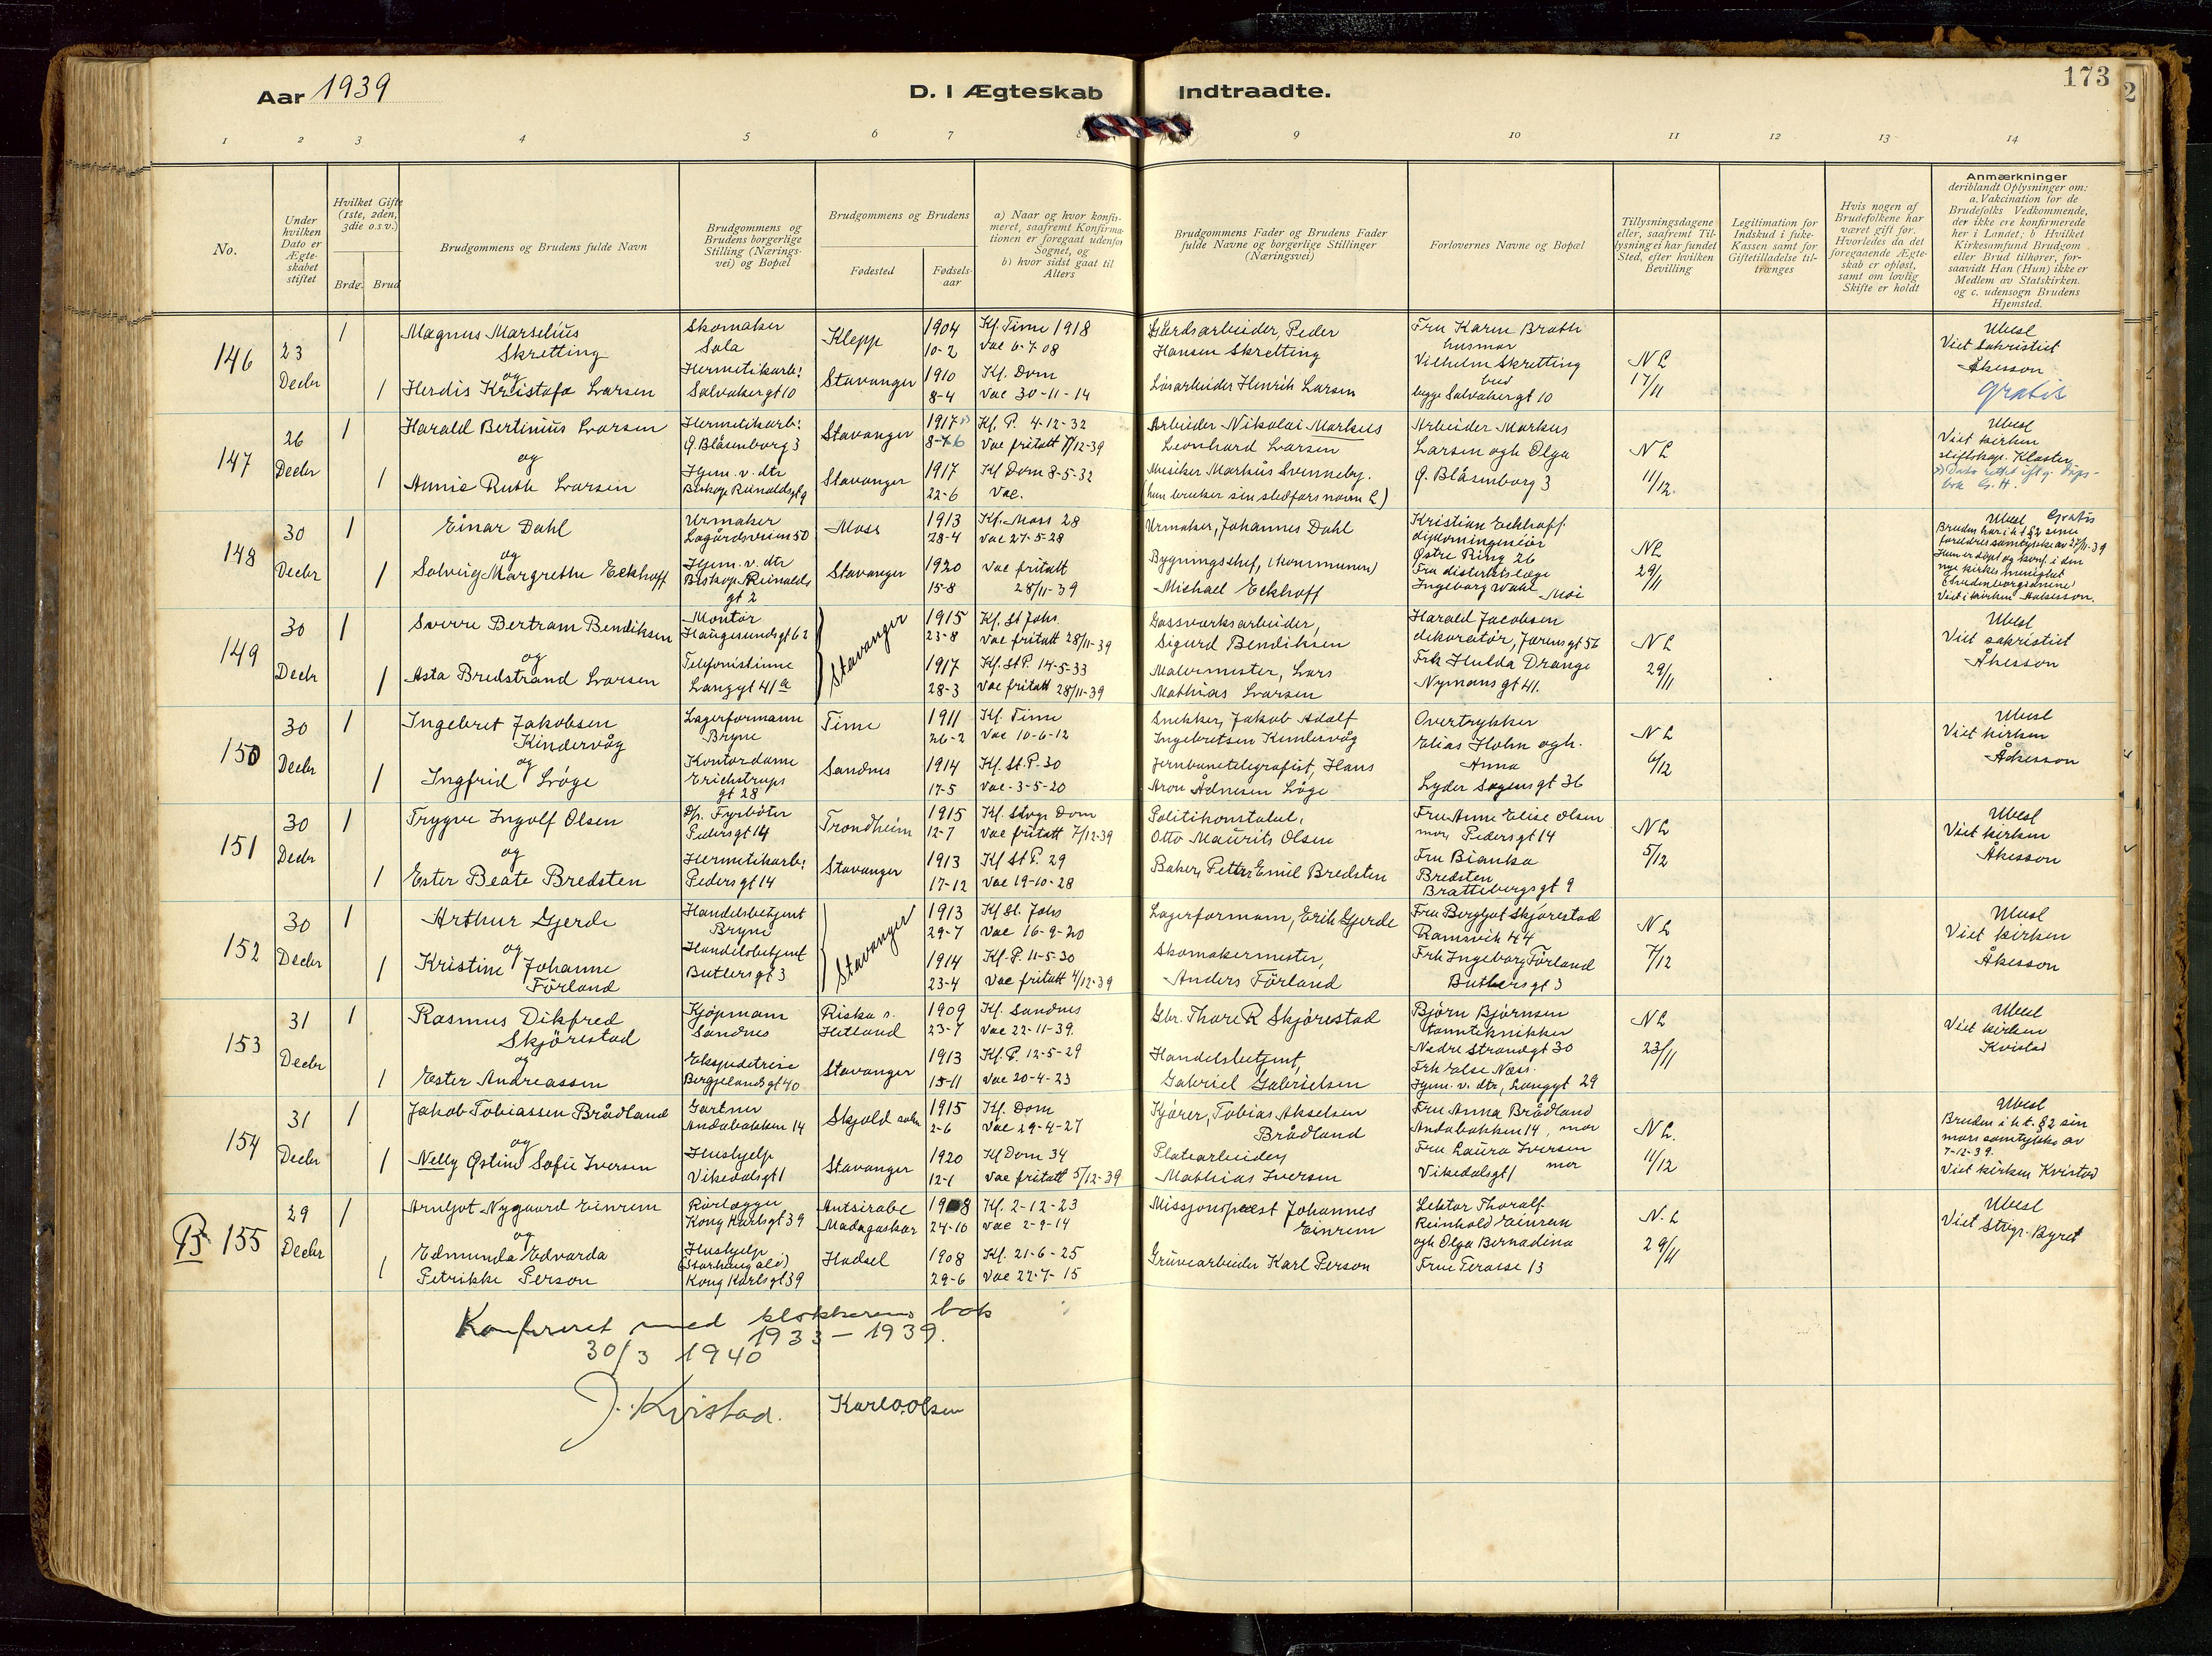 Aar 1939
D. I Ægteskab Indtraadte.
173
2
1 2 3 4 5 6 7 8 9 10 11 12 13 14
No.
Under hvilken Dato er Ægteskabet stiftet
Hvilket Gifte (1ste, 2den, 3die o.s.v.)
Brdg. Brud
Brudgommens og Brudens fulde Navn
Brudgommens og Brudens borgerlige Stilling (Næringsvei) og Bopæl
Brudgommens og Brudens
Fødested
Fødselsaar
a) Naar og hvor konfirmeret, saafremt Konfirmationen er foregaat udenfor Sognet, og b) hvor sidst gaat til Alters
Brudgommens Fader og Brudens Fader fulde Navne og borgerlige Stillinger (Næringsvei)
Forlovernes Navne og Bopæl
Tillysningsdagene eller, saafremt Tillysning ei har fundet Sted, efter hvilken Bevilling
Legitimation for Indskud i Enke-Kassen samt for Giftetilladelse tiltrænges
Hvis nogen af Brudefolkene har været gift før. Hvorledes da det foregaaende Ægteskab er opløst, samt om lovlig Skifte er holdt
Anmærkninger
deriblandt Oplysninger om: a. Vakcination for de Brudefolks Vedkommende, der ikke ere konfirmerede her i Landet; b Hvilket Kirkesamfund Brudgom eller Brud tilhører, forsaavidt Han (Hun) ikke er Medlem av Statskirken. og c. udensogn Brudens Hjemsted.
146
23 Decbr
1
Magnus Marselius Skretting
og
1
Herdis Kristofa Larsen
Skomaker
Sola
Hermetikarb:
Solvakergt 10
Klepp
Stavanger
1904
10-2
1910
8-4
Kf. Time 1918
Vac 6-7-08
Kf. Dom
Vac 30-11-14
Gårdsarbeider, Peder
Hansen Skretting
Løsarbeider Henrik Larsen
Fru Karen Brath
husmor
Vilhelm Skretting
bud
begge Solvakergt 10
N L
17/11
Ubesl
Viet sakristiet
Åkesson
gratis
147
26 Decbr
1
Harald Bertinius Larsen
og
1
Annie Ruth Larsen
Hermetikarb:
Ø. Blåsenborg 3
Hjem. v. dtr
Biskop Reinaldsgt 9
Stavanger
Stavanger
1917
8-6
1917
22-6
Kf. P. 4-12-32
Vac fritatt 7/12-39
Kf Dom 8-5-32
Vac.
Arbeider Nikolai Markus
Leonhard Larsen
Musiker Markus Svenneby.
(hun bruker sin stedfars navn L)
Arbeider Markus
Larsen ogh Olga
Ø. Blåsenborg 3
N L
11/12.
Ubesl
Viet kirken
stiftskap. Kloster
148
30 Decbr
1
Einar Dahl
og
1
Solveig Margrethe Eckhoff
Urmaker
Lagårdsveien 50
Hjem. v. dtr
Biskop Reinalds
gt 2
Moss
Stavanger
1913
28-4
1920
15-8
Kf. Moss 28
Vac 27-5-28
Vac fritatt
28/11-39
Urmaker, Johannes Dahl
Bygningschef, (kommunen)
Michael Eckhoff
Kristian Eckhoff
diplomingeniør
Østre Ring 26
Fru distriktslæge
Ingeborg Wahl Moi
NL
29/11
Ubesl Gratis
Bruden har i h t § 2 sine
foreldres samtykke av 27/11-39
Hun er døpt og konf. i den
nye kirkes menighet
(Svedenborgianine)
Viet i kirken Aakesson.
149
30 Decbr
1
Sverre Bertram Bendiksen
og
1
Asta Bredstrand Larsen
Montør
Haugesundsgt 62
Telefonistinne
Langgt 41a
Stavanger
1915
23-8
1917
28-3
Kf. St Johs
Vac fritatt 28/11-39
Kf. St P. 14-5-33
Vac fritatt 28/11-39
Gassverksarbeider,
Sigurd Bendiksen
Malermester, Lars
Mathias Larsen
Harald Jacobsen
dekoratør, Jærensgt 56
Frk Hulda Drange
Nymansgt 41.
N L
29/11
Ubesl
Viet sakristiet
Åkesson
150
30 Decbr
1
Ingebret Jakobsen
Kindervåg
og
1
Ingfrid Løge
Lagerformann
Bryne
Kontordame
Erichstrups
gt 28
Time
Sandnes
1911
26-2
1914
17-5
Kf. Time
Vac 10-6-12
Kf. St. P. 30
Vac 3-5-20
Snekker, Jakob Adolf
Ingebretsen Kindervåg
Jernbanetelegrafist, Hans
Aron Ådnesen Løge
Overtrykker
Elias Holm ogh.
Anna
Lyder Sagensgt 36
N L
6/12
Ubesl
Viet kirken
Åkesson
151
30 Decbr
1
Trygve Ingolf Olsen
og
1
Ester Beate Bredsten
D/s. Fyrbøter
Pedersgt 14
Hermetikarb:
Pedersgt 14
Trondheim
Stavanger
1915
12-7
1913
17-12
Kf. Stvgr Dom
Vac fritatt 7/12-39
Kf St P. 29
Vac 19-10-28
Politikonstabel,
Otto Maurits Olsen
Baker, Petter Emil Bredsten
Fru Anne Elise Olsen
mor, Pedersgt 14
Fru Bianka
Bredsten
Brattebergsgt 9
N L
5/12
Ubesl
Viet kirken
Åkesson
152
30 Decbr
1
Arthur Gjerde
og
1
Kristine Johanne
Førland
Handelsbetjent
Bryne
Handelsbetjent
Butlersgt 3
Stavanger
1913
29-7
1914
23-4
Kf St. Johs
Vac 16-9-20
Kf. P. 11-5-30
Vac fritatt 4/12-39
Lagerformann, Erik Gjerde
Skomakermester,
Anders Førland
Fru Bergljot Skjørestad
Ramsvik 44
Frk Ingeborg Førland
Butlersgt 3
N L
7/12
Ubesl
Viet kirken
Åkesson
153
31 Decbr
1
Rasmus Dikfred
Skjørestad
og
1
Ester Andreassen
Kjøpmann
Sandnes
Ekspeditrise
Bergelandsgt 40
Riska s.
Hetland
Stavanger
1909
23-7
1913
15-11
Kf. Sandnes
Vac 22-11-39.
Kf. P. 12-5-29
Vac 20-4-23
Gbr. Thore R Skjørestad
Handelsbetjent,
Gabriel Gabrielsen
Bjørn Bjørnsen
tanntekniker
Nedre Strandgt 30
Frk Else Næss.
Hjem. v. dtr, Langgt 29
N L
23/11
Ubesl
Viet kirken
Kvistad
154
31 Decbr
1
Jakob Tobiassen Brådland
og
1
Nelly Østine Sofie Iversen
Gartner
Andabakken 14
Hushjelp
Vikedalsgt 1
Skjold
Stavanger
1915
2-6
1920
12-1
Kf. Dom
Vac 29-4-27
Kf Dom 34
Vac fritatt 5/12-39
Kjører, Tobias Akselsen
Brådland
Platearbeider,
Mathias Iversen
Fru Anna Brådland
Andabakken 14, mor
Fru Laura Iversen
mor
Vikedalsgt 1
N L.
11/12
Ubesl
Bruden i h t. § 2 sin
mors samtykke av
7-12-39.
Viet kirken Kvistad
B. 155
29 Decbr
1
Arnljot Nygaard Einrem
og
1
Edmunda Edvarda
Petrikke Person
Rørlegger
Kong Karlsgt 39
Hushjelp
(Storhaug ald)
Kong Karlsgt 39
Antsirabe
Madagaskar
Hadsel
24-10
1908
29-6
Kf. 2-12-23
Vac 2-9-14
Kf. 21-6-25
Vac 22-7-15
Missjonsprest Johannes
Einrem
Gruvearbeider Karl Person
Lektor Thoralf
Reinhold Einrem
ogh Olga Bernadina
Frue Terasse 13
N. L
29/11
Ubesl
Viet Stvgr. Byret
Konfereret med klokkerens bok
1933 – 1939.
30/3 1940
J. Kvistad. Karl O. Olsen